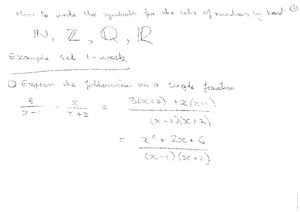 How to write the symbols for the sets of numbers by hand. ①
ℕ, ℤ, ℚ, ℝ
Example set 1 - week
① Express the following as a single fraction
3/(x-1) - x/(x+2) = (3(x+2) + x(x-1))/((x-1)(x+2))
= (x² + 2x + 6)/((x-1)(x+2))